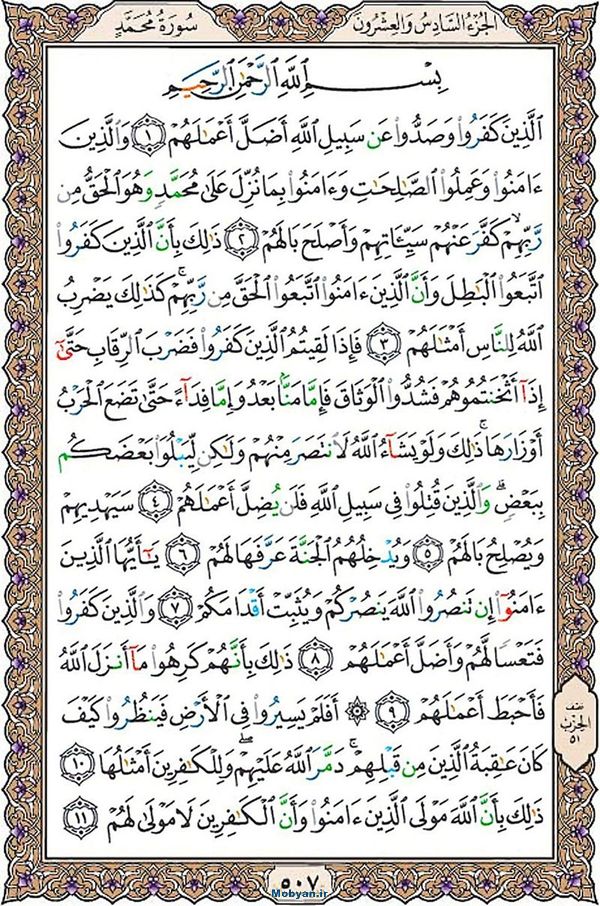 الجُزءُ السَّادِسُ وَالعِشرُونَ
سُورَةُ مُحَمَّدٍ
بِسْمِ ٱللَّهِ ٱلرَّحْمَٰنِ ٱلرَّحِيمِ
ٱلَّذِينَ كَفَرُوا۟ وَصَدُّوا۟ عَن سَبِيلِ ٱللَّهِ أَضَلَّ أَعْمَٰلَهُمْ ١ وَٱلَّذِينَ
ءَامَنُوا۟ وَعَمِلُوا۟ ٱلصَّٰلِحَٰتِ وَءَامَنُوا۟ بِمَا نُزِّلَ عَلَىٰ مُحَمَّدٍ وَهُوَ ٱلْحَقُّ مِن
رَّبِّهِمْ ۙ كَفَّرَ عَنْهُمْ سَيِّـَٔاتِهِمْ وَأَصْلَحَ بَالَهُمْ ٢ ذَٰلِكَ بِأَنَّ ٱلَّذِينَ كَفَرُوا۟
ٱتَّبَعُوا۟ ٱلْبَٰطِلَ وَأَنَّ ٱلَّذِينَ ءَامَنُوا۟ ٱتَّبَعُوا۟ ٱلْحَقَّ مِن رَّبِّهِمْ ۚ كَذَٰلِكَ يَضْرِبُ
ٱللَّهُ لِلنَّاسِ أَمْثَٰلَهُمْ ٣ فَإِذَا لَقِيتُمُ ٱلَّذِينَ كَفَرُوا۟ فَضَرْبَ ٱلرِّقَابِ حَتَّىٰٓ
إِذَآ أَثْخَنتُمُوهُمْ فَشُدُّوا۟ ٱلْوَثَاقَ فَإِمَّا مَنًّۢا بَعْدُ وَإِمَّا فِدَآءً حَتَّىٰ تَضَعَ ٱلْحَرْبُ
أَوْزَارَهَا ۚ ذَٰلِكَ وَلَوْ يَشَآءُ ٱللَّهُ لَٱنتَصَرَ مِنْهُمْ وَلَٰكِن لِّيَبْلُوَا۟ بَعْضَكُم
بِبَعْضٍ ۗ وَٱلَّذِينَ قُتِلُوا۟ فِى سَبِيلِ ٱللَّهِ فَلَن يُضِلَّ أَعْمَٰلَهُمْ ٤ سَيَهْدِيهِمْ
وَيُصْلِحُ بَالَهُمْ ٥ وَيُدْخِلُهُمُ ٱلْجَنَّةَ عَرَّفَهَا لَهُمْ ٦ يَٰٓأَيُّهَا ٱلَّذِينَ
ءَامَنُوٓا۟ إِن تَنصُرُوا۟ ٱللَّهَ يَنصُرْكُمْ وَيُثَبِّتْ أَقْدَامَكُمْ ٧ وَٱلَّذِينَ كَفَرُوا۟
فَتَعْسًا لَّهُمْ وَأَضَلَّ أَعْمَٰلَهُمْ ٨ ذَٰلِكَ بِأَنَّهُمْ كَرِهُوا۟ مَآ أَنزَلَ ٱللَّهُ
فَأَحْبَطَ أَعْمَٰلَهُمْ ٩ ۞ أَفَلَمْ يَسِيرُوا۟ فِى ٱلْأَرْضِ فَيَنظُرُوا۟ كَيْفَ
كَانَ عَٰقِبَةُ ٱلَّذِينَ مِن قَبْلِهِمْ ۚ دَمَّرَ ٱللَّهُ عَلَيْهِمْ ۖ وَلِلْكَٰفِرِينَ أَمْثَٰلُهَا ١٠
ذَٰلِكَ بِأَنَّ ٱللَّهَ مَوْلَى ٱلَّذِينَ ءَامَنُوا۟ وَأَنَّ ٱلْكَٰفِرِينَ لَا مَوْلَىٰ لَهُمْ ١١
نصف
الحزب
٥١
٥٠٧
Mobyan.ir